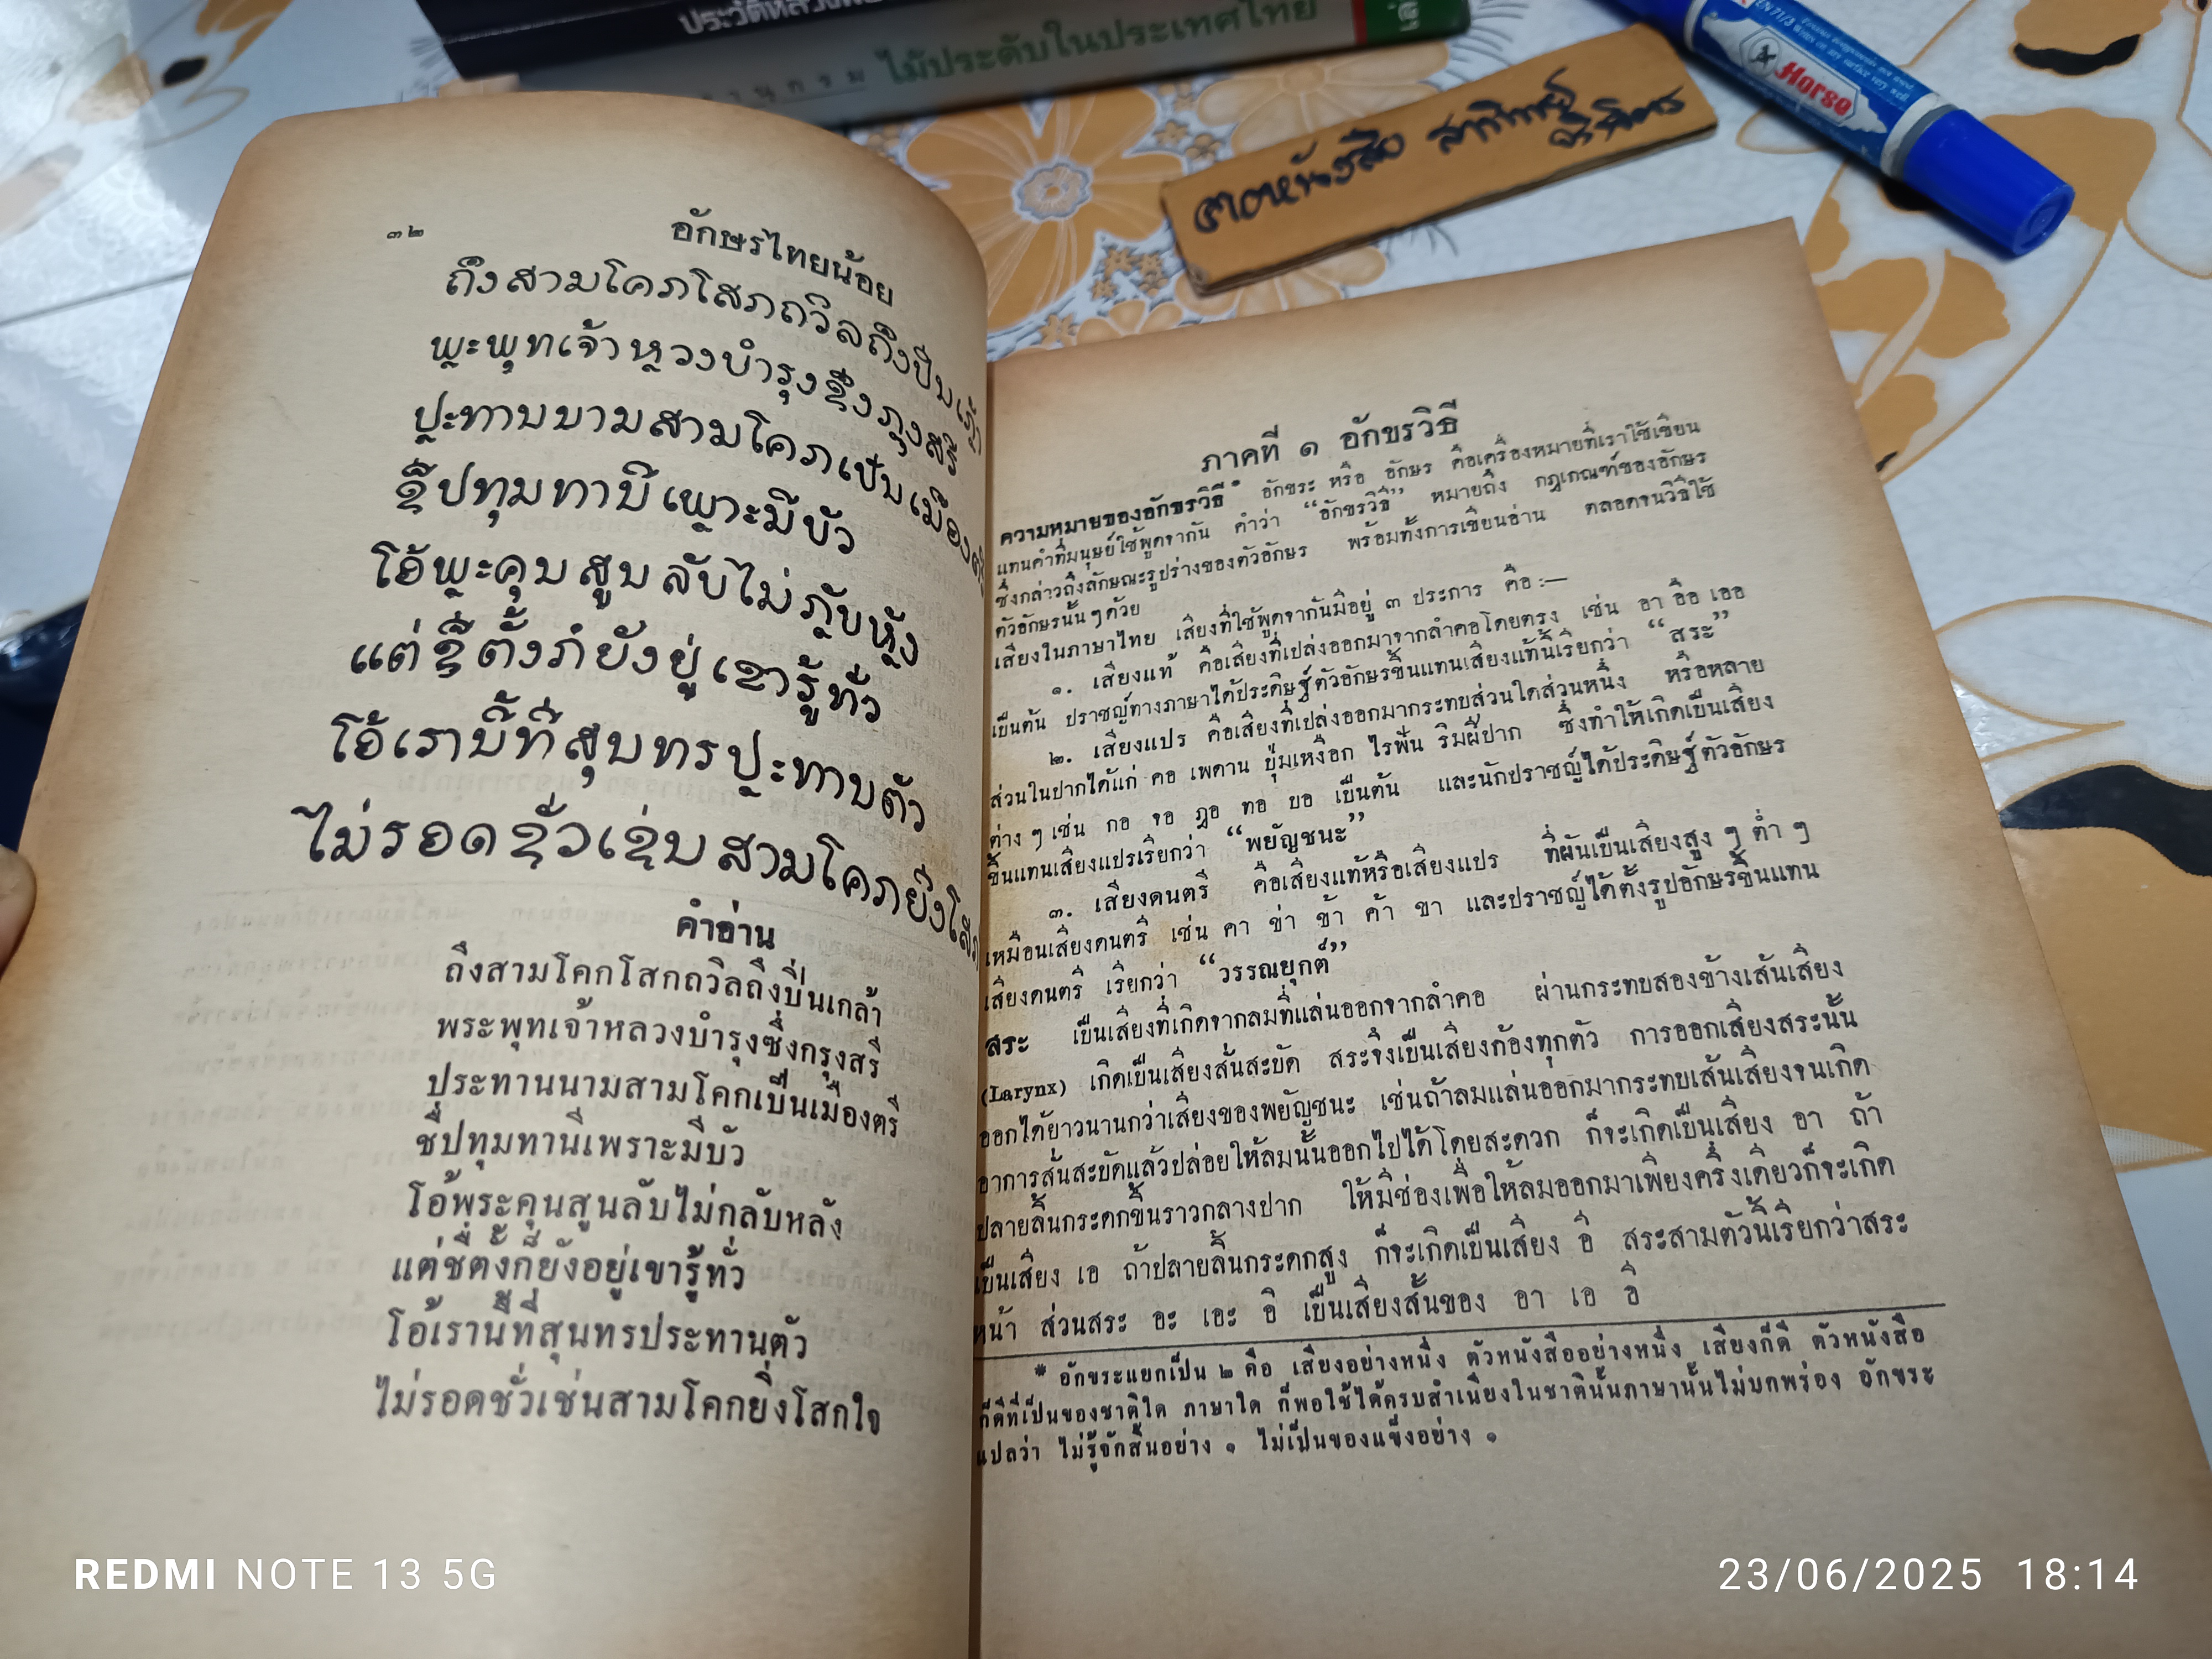 ไม้ประดับในประเทศไทย
Horse
๓๒
อักษรไทยน้อย
คำอ่าน
ถึงสามโคกโสกถวิลถึงปิ่นเกล้า
พระพุทเจ้าหลวงบำรุงซึ่งกรุงสรี
ประทานนามสามโคกเป็นเมืองตรี
ชื่ปทุมทานีเพราะมีบัว
โอ้พระคุนสูนลับไม่กลับหลัง
แต่ชื่ตั้งก็ยังอยู่เขารู้ทั่ว
โอ้เรานี้ที่สุนทรประทานตัว
ไม่รอดชั่วเช่นสามโคกยิ่งโสกใจ
ภาคที่ ๑ อักขรวิธี
ความหมายของอักขรวิธี* อักขระ หรือ อักษร คือเครื่องหมายที่เราใช้เขียน
แทนคำที่มนุษย์ใช้พูดจากัน คำว่า “อักขรวิธี” หมายถึง กฎเกณฑ์ของอักษร
ซึ่งกล่าวถึงลักษณะรูปร่างของตัวอักษร พร้อมทั้งการเขียนอ่าน ตลอดจนวิธีใช้
ตัวอักษรนั้น ๆ ด้วย
เสียงในภาษาไทย เสียงที่ใช้พูดจากันมีอยู่ ๓ ประการ คือ :—
๑. เสียงแท้ คือเสียงที่เปล่งออกมาจากลำคอโดยตรง เช่น อา ออ เออ
เป็นต้น ปราชญ์ทางภาษาได้ประดิษฐ์ตัวอักษรขึ้นแทนเสียงแท้นี้เรียกว่า “สระ”
๒. เสียงแปร คือเสียงที่เปล่งออกมากระทบส่วนใดส่วนหนึ่ง หรือหลาย
ส่วนในปากได้แก่ คอ เพดาน ปุ่มเหงือก ไรฟัน ริมฝีปาก ซึ่งทำให้เกิดเป็นเสียง
ต่าง ๆ เช่น กอ จอ ฎอ ทอ บอ เป็นต้น และนักปราชญ์ได้ประดิษฐ์ตัวอักษร
ขึ้นแทนเสียงแปรเรียกว่า “พยัญชนะ”
๓. เสียงดนตรี คือเสียงแท้หรือเสียงแปร ที่ผันเป็นเสียงสูง ๆ ต่ำ ๆ
เหมือนเสียงดนตรี เช่น คา ข่า ข้า ค้า ขา และปราชญ์ได้ตั้งรูปอักษรขึ้นแทน
เสียงดนตรี เรียกว่า “วรรณยุกต์”
สระ เป็นเสียงที่เกิดจากลมที่แล่นออกจากลำคอ ผ่านกระทบสองข้างเส้นเสียง
(Larynx) เกิดเป็นเสียงสั่นสะบัด สระจึงเป็นเสียงก้องทุกตัว การออกเสียงสระนั้น
ออกได้ยาวนานกว่าเสียงของพยัญชนะ เช่นถ้าลมแล่นออกมากระทบเส้นเสียงจนเกิด
อาการสั่นสะบัดแล้วปล่อยให้ลมนั้นออกไปได้โดยสะดวก ก็จะเกิดเป็นเสียง อา ถ้า
ปลายลิ้นกระดกขึ้นราวกลางปาก ให้มีช่องเพื่อให้ลมออกมาเพียงครึ่งเดียวก็จะเกิด
เป็นเสียง เอ ถ้าปลายลิ้นกระดกสูง ก็จะเกิดเป็นเสียง อี สระสามตัวนี้เรียกว่าสระ
หน้า ส่วนสระ อะ เอะ อิ เป็นเสียงสั้นของ อา เอ อี
* อักขระแยกเป็น ๒ คือ เสียงอย่างหนึ่ง ตัวหนังสืออย่างหนึ่ง เสียงก็ดี ตัวหนังสือ
ก็ดีที่เป็นของชาติใด ภาษาใด ก็พอใช้ได้ครบสำเนียงในชาตินั้นภาษานั้นไม่บกพร่อง อักขระ
แปลว่า ไม่รู้จักสิ้นอย่าง ๑ ไม่เป็นของแข็งอย่าง ๑
REDMI NOTE 13 5G
23/06/2025 18:14